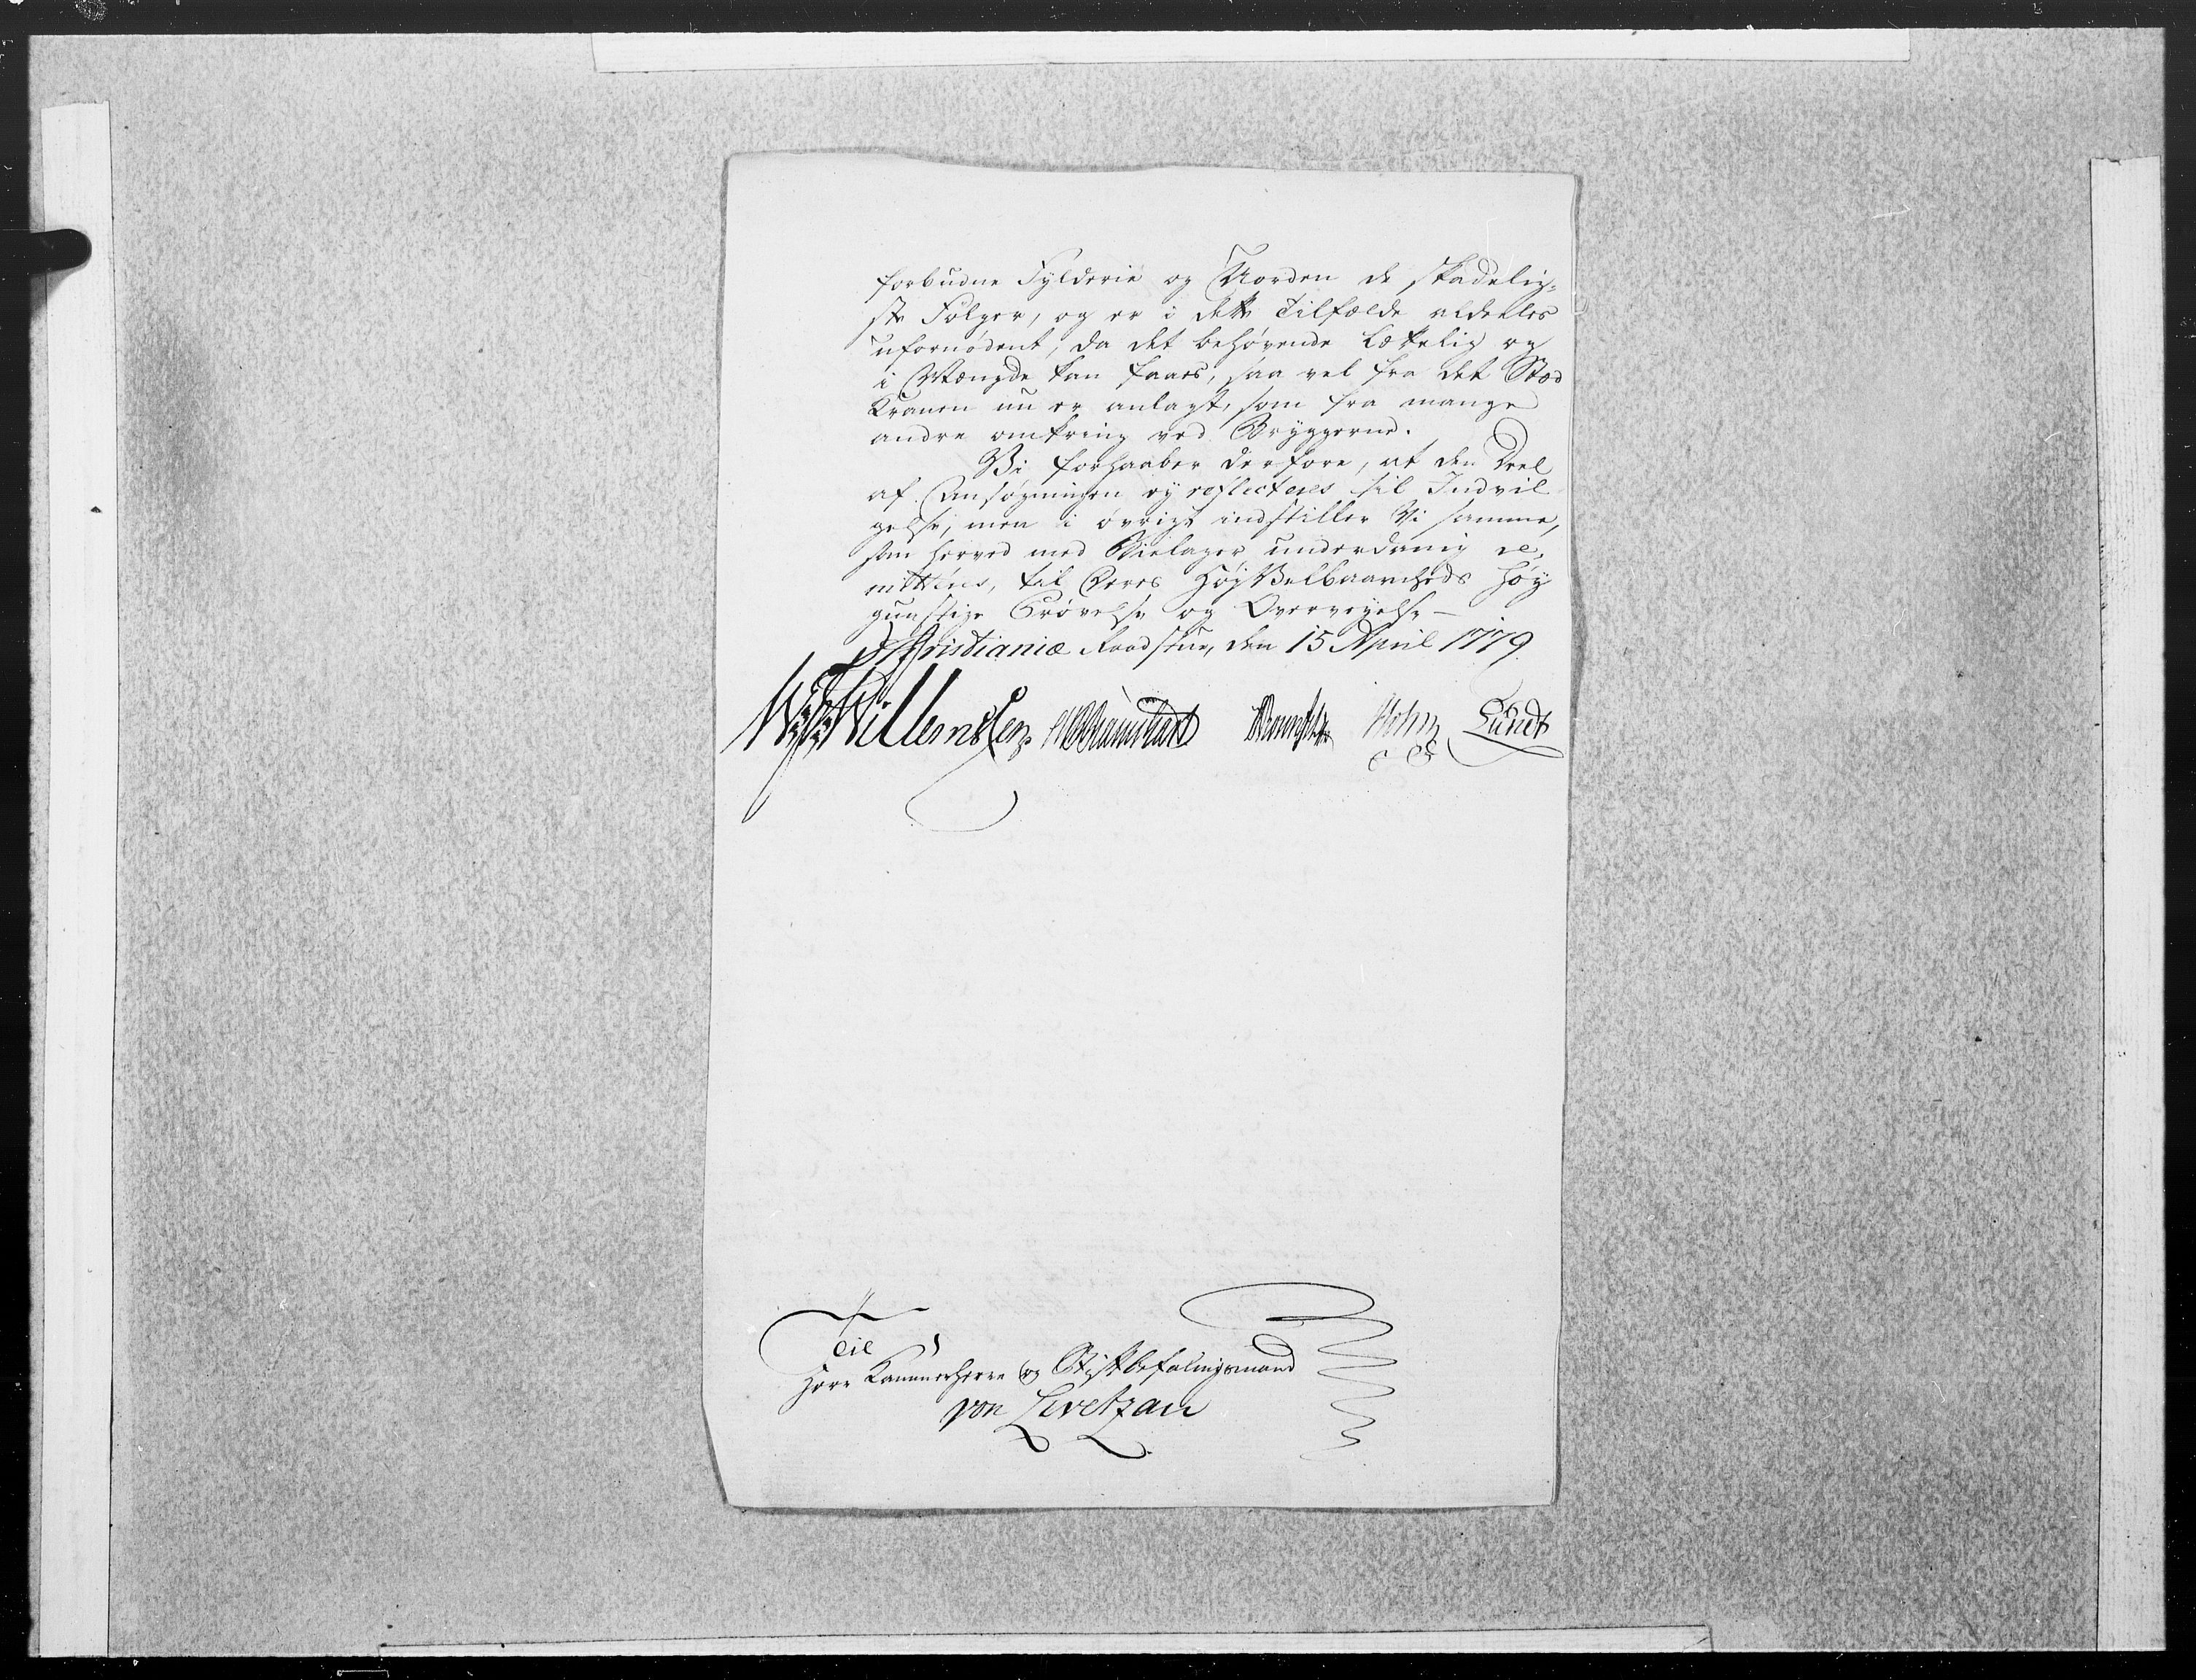 forbudne Fylderie og Uorden de skadelig-
ste Følger, og er i dette Tilfælde aldeeles
ufornødent, da det behøvende lættelig og
i Mængde kan faaes, saa vel fra det Stæd
Kranen nu er anlagt, som fra mange
andre omkring ved Bryggerne.
Vi forhaaber derfore, at den Deel
af Ansøgningen ej reflecteres til Indvil
gelse, men i øvrigt indstiller Vi samme,
som herved med Bielager underdanig re-
mitteres, til Deres HøyVelbaarenheds Høy
gunstige Prøvelse og Overveyelse –
Christianiæ Raadstue, den 15 April 1779.
Willemsen Holm Lundt
Til
Herr Kammerherre og Stiftbefalingsmand
von Levetzau